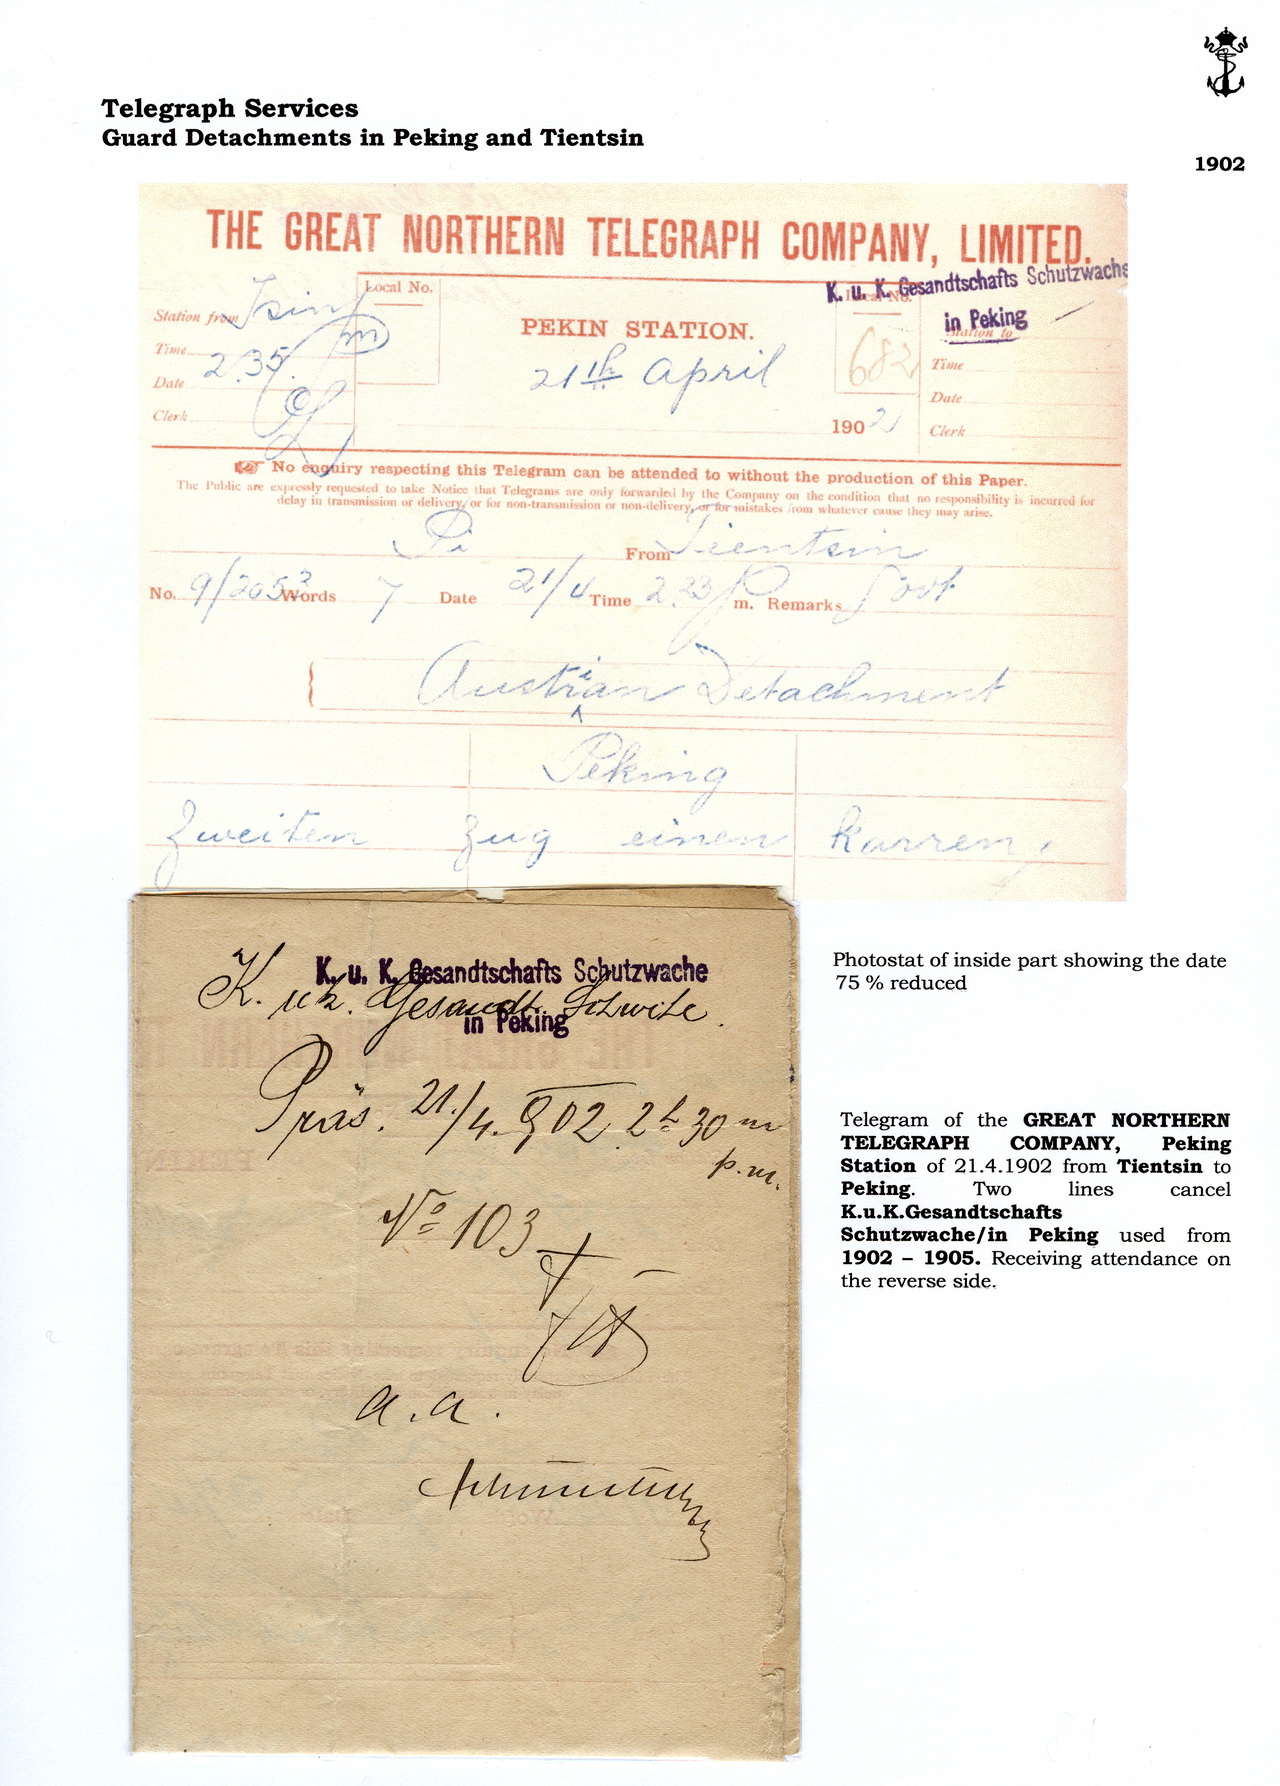 Telegraph Services
Guard Detachments in Peking and Tientsin
1902
THE GREAT NORTHERN TELEGRAPH COMPANY, LIMITED.
K. u. K. Gesandtschafts Schutzwache
in Peking
Local No.
Local No.
Station from
PEKIN STATION.
Station to
Time 2.35 m
682
Time
21th April
Date
Date
Clerk
1902
Clerk
No enquiry respecting this Telegram can be attended to without the production of this Paper.
The Public are expressly requested to take Notice that Telegrams are only forwarded by the Company on the condition that no responsibility is incurred for
delay in transmission or delivery, or for non-transmission or non-delivery, or for mistakes from whatever cause they may arise.
From Tientsin
No. 9/2053 Words 7 Date 21/4 Time 2.23 p m. Remarks Govt
Austrian Detachment
Peking
Zweiten Zug einen karren
K. u. K. Gesandtschafts Schutzwache
in Peking
K. u. k. Gesandt.
Präs. 21./4. 902 2h 30 m
p.m.
No 103
a.a.
Photostat of inside part showing the date
75 % reduced
Telegram of the GREAT NORTHERN
TELEGRAPH COMPANY, Peking
Station of 21.4.1902 from Tientsin to
Peking. Two lines cancel
K.u.K.Gesandtschafts
Schutzwache/in Peking used from
1902 – 1905. Receiving attendance on
the reverse side.